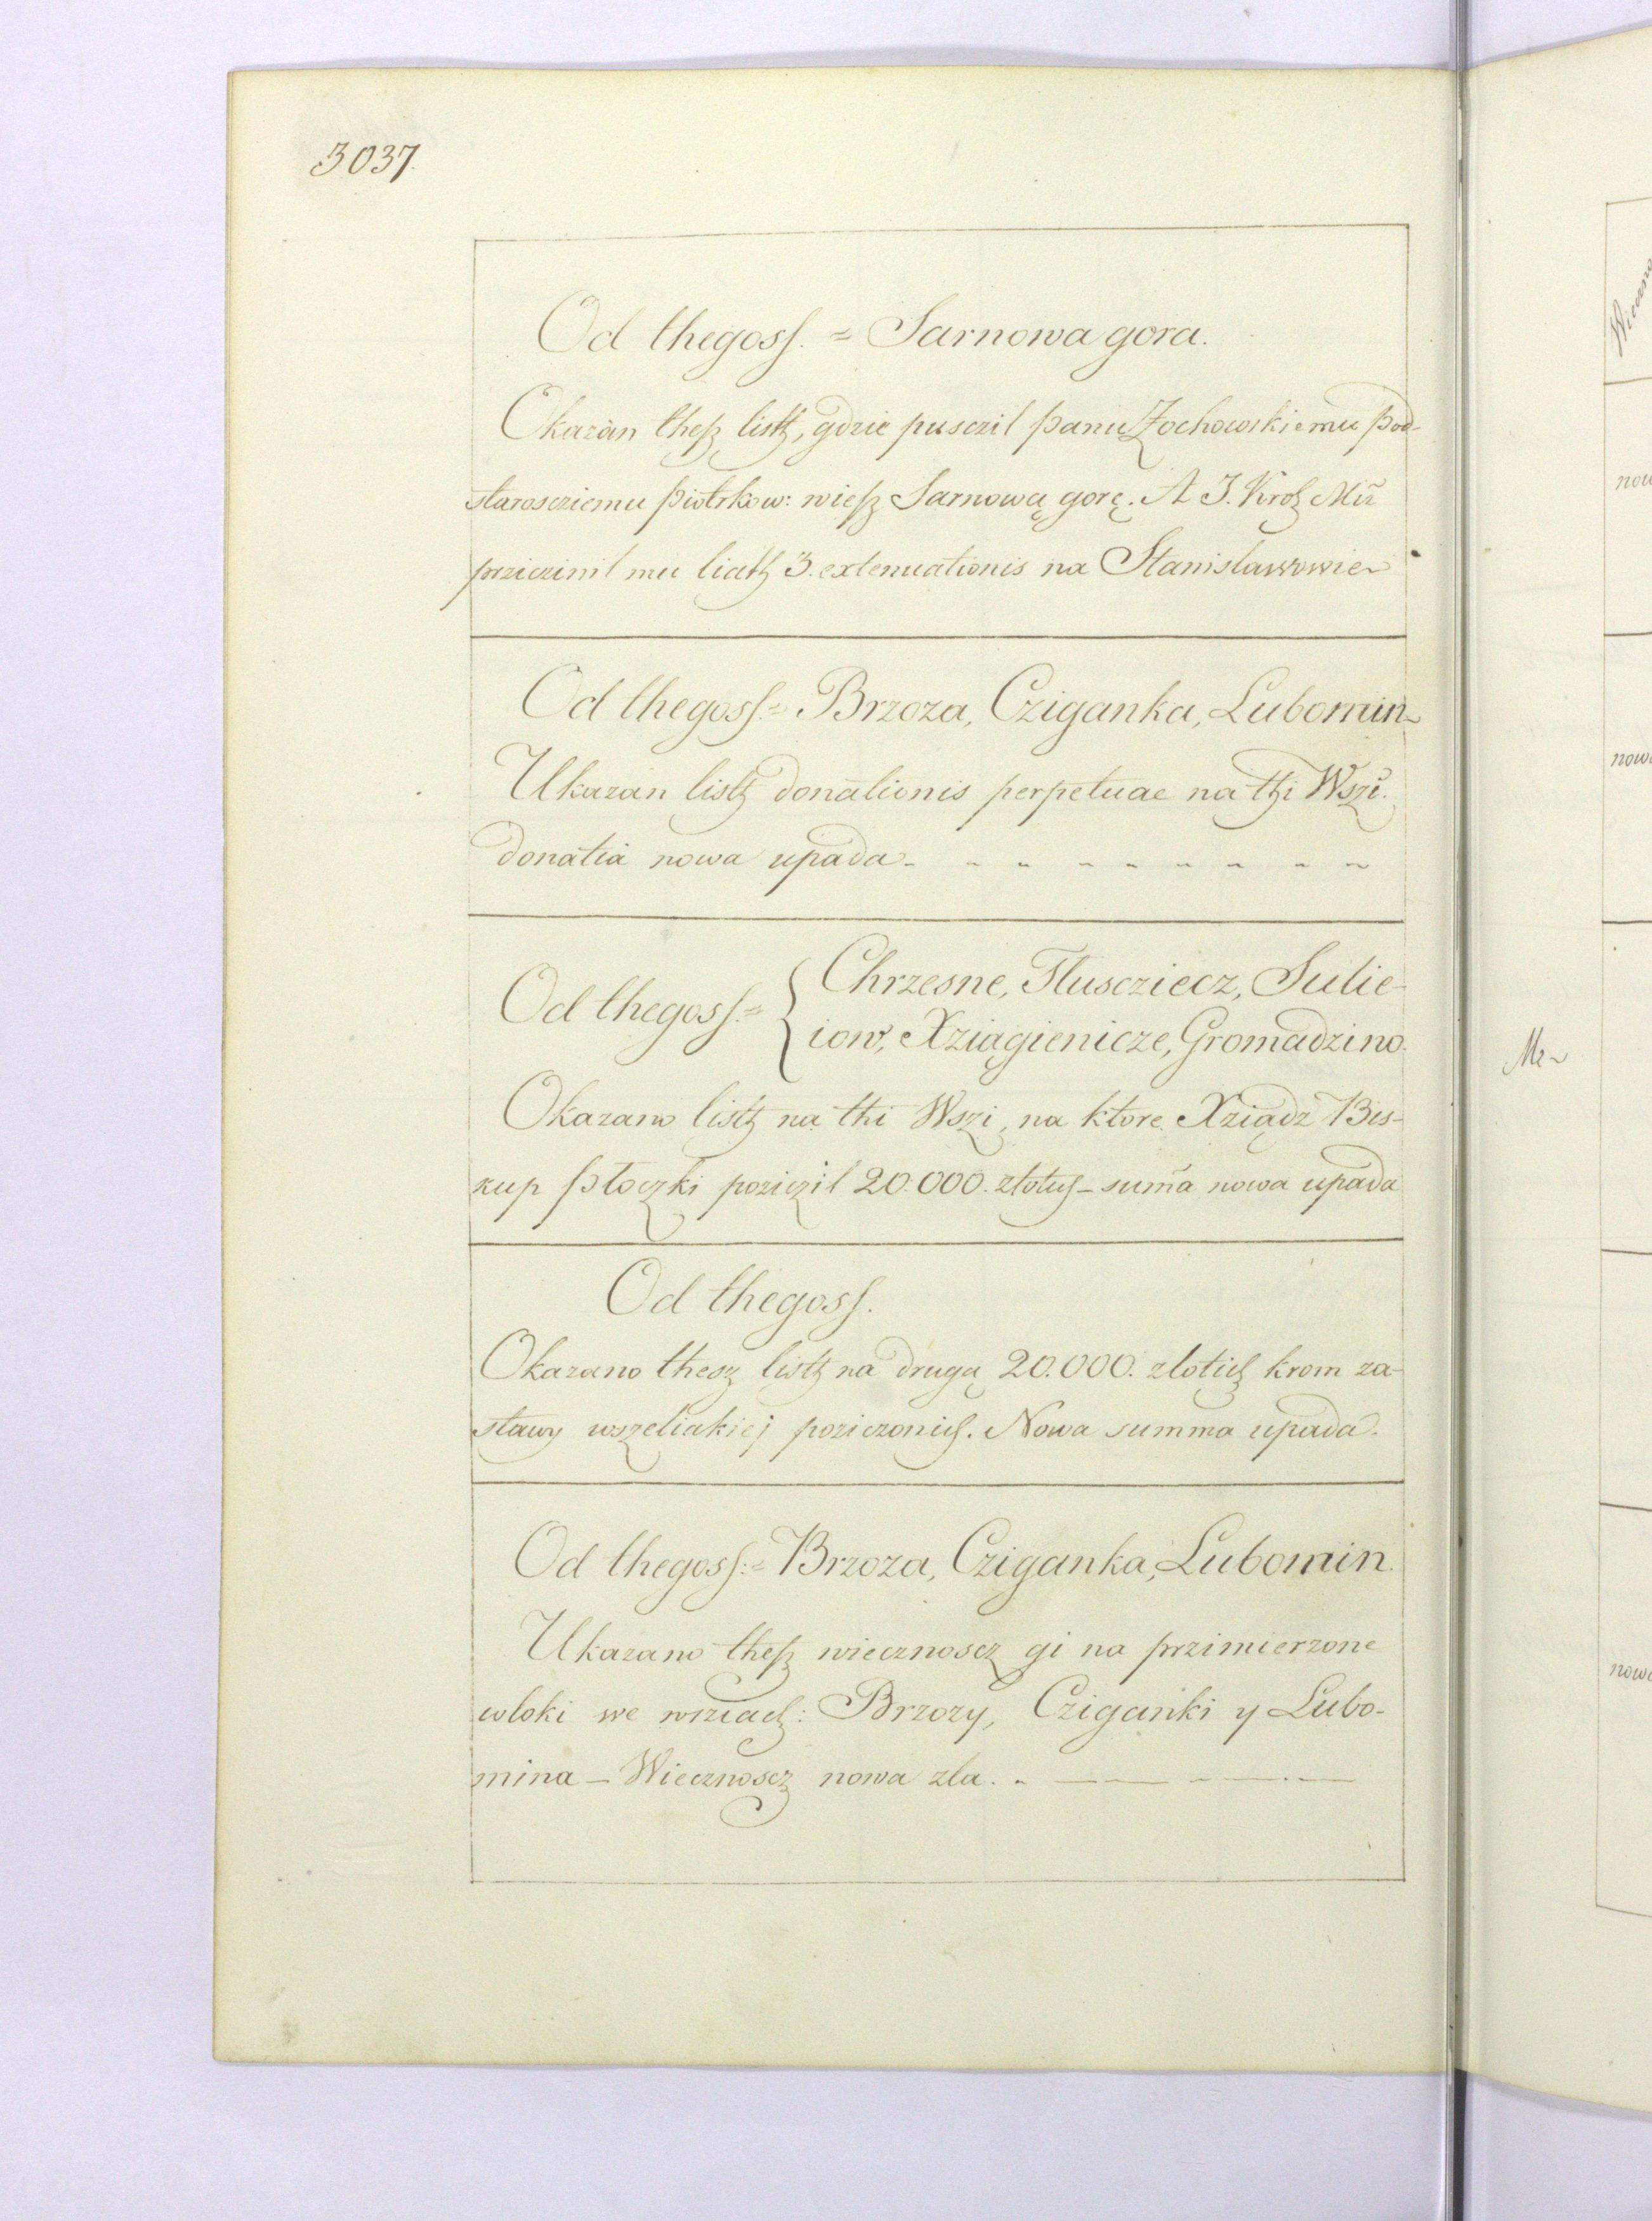 3037.
Od thegoss. = Sarnowa gora.
Okazan thesz listh, gdzie pusczil panu Zochowskiemu pod-
starosciemu piotrkow: wiesz Sarnową gorę. A J. Krol Mcz
prziczinil mu liath 3. extenuationis na Stanislawowie
Od thegoss. = Brzoza, Cziganka, Lubomin
Ukazan listh donationis perpetuae na thi Wszi.
donatia nowa upada
Od thegoss. = { Chrzesne, Tluscziecz, Sulie-
iow, Xziągienicze, Gromadzino.
Okazano listh na thi Wszi, na ktore Xziądz Bis-
kup płoczki poziczil 20.000. złotych – sum̃a nowa upada
Od thegoss.
Okazano thesz listh na drugą 20.000. zlotich krom za-
stawy wszeliakiej poziczonich. Nowa summa upada.
Od thegoss: = Brzoza, Cziganka, Lubomin.
Ukazano thesz wiecznoscz gi na przimierzone
wloki we wsziach: Brzozy, Cziganki y Lubo-
mina – Wiecznoscz nowa zla.
Mr
now
nowa
nowa